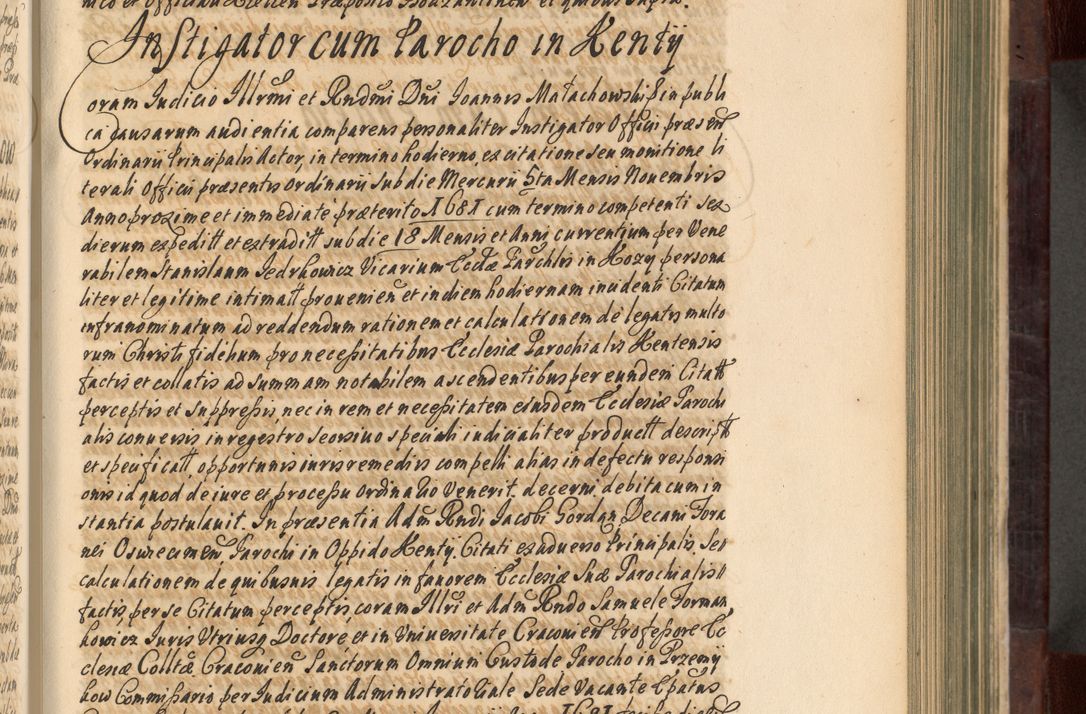 Instigator cum Parocho in Kenty
Coram Judicio Illrmi et Rndmi Dni Joannis Małachowski E in publi
ca causarum audientia comparens personaliter Instigator Officii præsen
Ordinarii Principalis Actor, in termino hodierno, ex citatione seu monitione li
terali Officii præsentis Ordinarii sub die Mercurii 5ta Mensis Novembris
Anno proxime et immediatè præterito 1681 cum termino competenti sex
dierum expeditt et extraditt sub die 18 Mensis et Anni currentium per Vene
rabilem Stanislaum Jedrkowicz Vicarium Ecclæ Parchlis in Kozy persona
liter et legitime intimatt provenien et in diem hodiernam incidenti Citatum
infranominatum ad reddendum rationem et calculationem de legatis multo
rum Christi fidelium pro necessitatibus Ecclesiæ Parochialis Kentensis
factis et collatis ad summam notabilem ascendentibus per eundem Citatt
perceptis et suppressis, nec in rem et necessitatem eiusdem Ecclesiæ Parochi
alis conversis in regestro seorsivo speciali iudicialiter productt descriptt
et specificatt, opportunis iuris remediis compelli alias in defectu responsi
onis id quod de iure et processu ordinatio venerit decerni debita cum in
stantia postulavit. In præsentia Adm Rndi Jacobi Gordan Decani Fora
nei Oswecimen Parochi in Oppido Kenty Citati ex adverso Principalis. Set
calculationem de quibusvis legatis in favorem Ecclesiæ Suæ Parochialis
factis, per se Citatum perceptis, coram Illri et Adm Rndo Samuele Forman
kowicz Juris Utriusq Doctore et in Universitate Cracovien Professore Ec
clesiæ Colltæ Cracovien Sanctorum Omnium Custode Parocho in Przemy
kow Commissario per Judicium Administratoriale Sede Vacante Epatus